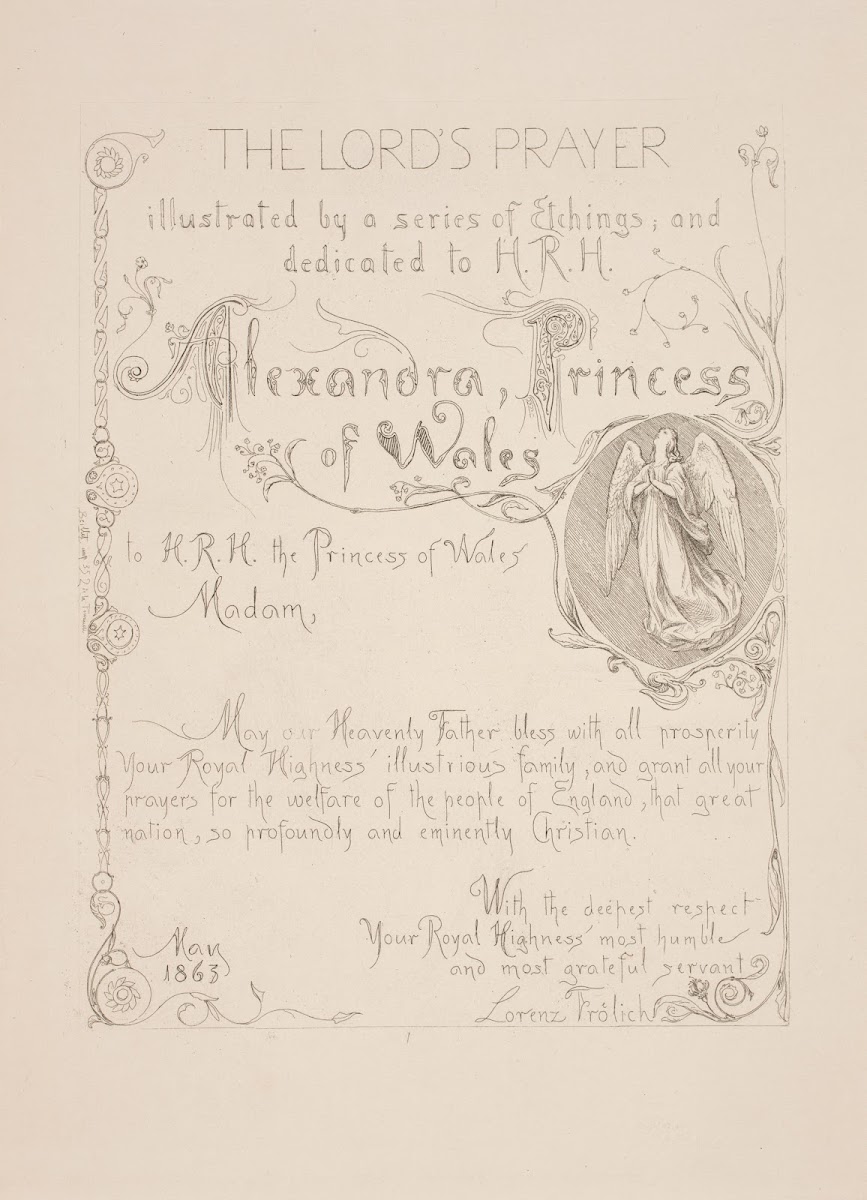 THE LORD'S PRAYER
illustrated by a series of Etchings; and
dedicated to H.R.H.
Alexandra, Princess
of Wales
to H.R.H. the Princess of Wales
Madam,
May our Heavenly Father bless with all prosperity
Your Royal Highness' illustrious family, and grant all your
prayers for the welfare of the people of England, that great
nation, so profoundly and eminently Christian.
With the deepest respect
Your Royal Highness' most humble
and most grateful servant
Lorenz Frölich
May
1863
1